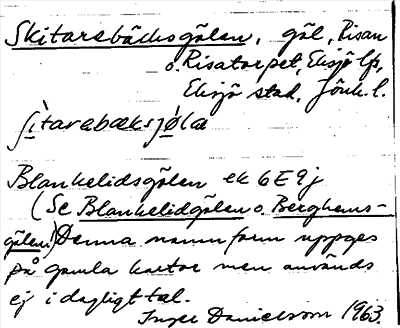 Skitarebäcksgölen, göl, Risan
o. Risatorpet, Eksjö lfs,
Eksjö stad, Jönk. l.
ʃìtarabæksjø̀la
Blankelidsgölen ek 6E9j
(Se Blankelidgölen o. Berghems-
gölen) Denna namnform uppges
på gamla kartor men används
ej i dagligt tal.
Inger Danielsson 1963.